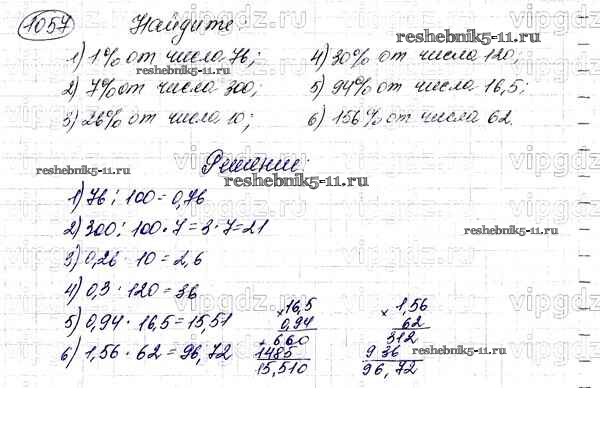 1057 Найдите:
1) 1% от числа 76; 4) 30% от числа 120;
2) 7% от числа 300; 5) 94% от числа 16,5;
3) 26% от числа 10; 6) 156% от числа 62.
Решение:
1) 76 : 100 = 0,76
2) 300 : 100 · 7 = 3 · 7 = 21
3) 0,26 · 10 = 2,6
4) 0,3 · 120 = 36
5) 0,94 · 16,5 = 15,51
6) 1,56 · 62 = 96,72
× 16,5
0,94
+ 660
1485
15,510
× 1,56
62
312
936
96,72
reshebnik5-11.ru
reshebnik5-11.ru
reshebnik5-11.ru
reshebnik5-11.ru
reshebnik5-11.ru
reshebnik5-11.ru
vipgdz.ru
vipgdz.ru
vipgdz.ru